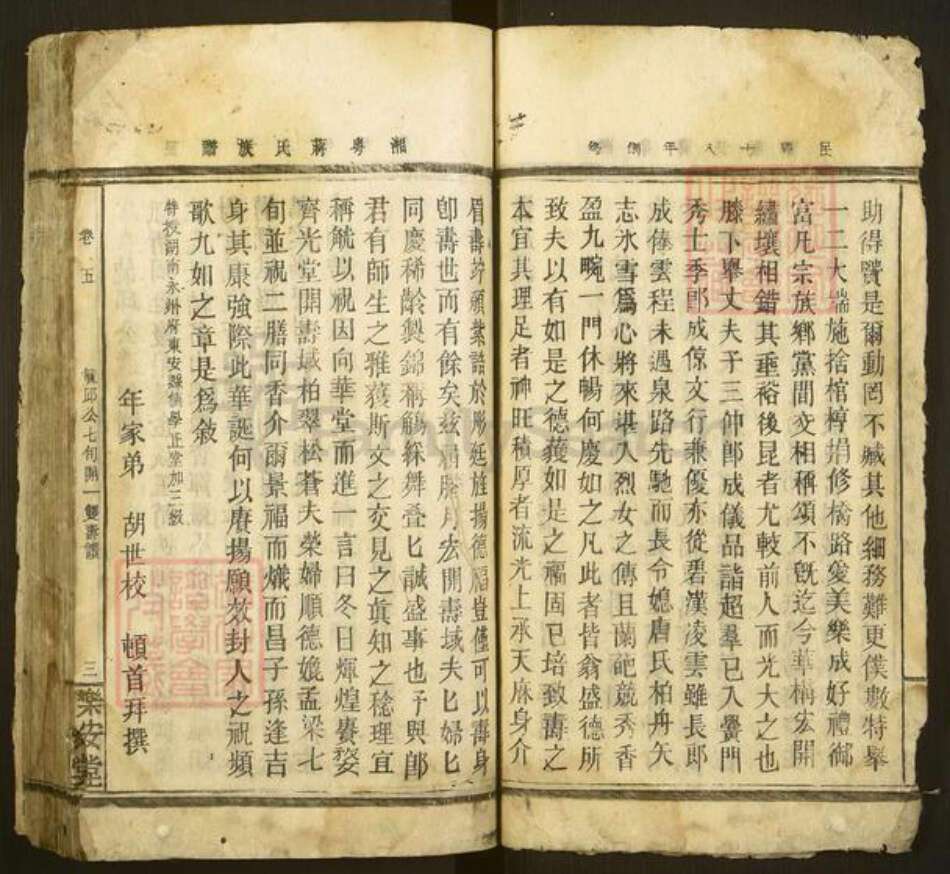 民國十八年續修
助得贒是爾動罔不臧其他細務難更僕數特舉
一二大端施捨棺槨捐修橋路爰美樂成好禮鄉
富凡宗族鄉黨間交相稱頌不旣迄今華構宏開
繡壤相錯其垂裕後昆者尤較前人而光大之也
膝下舉丈夫子三仲郎成儀品詣超羣已入黌門
秀士季郎成倞文行兼優亦從碧漢凌雲雖長郎
成僚雲程未遇泉路先馳而長令媳唐氏柏舟矢
志氷雪爲心將來堪入烈女之傳且蘭配競秀香
盈九畹一門休暢何慶如之凡此者皆翁盛德所
致夫以有如是之德獲如是之福固已培致壽之
本宜其理足者神旺積厚者流光上承天庥身介
湘粵蔣氏族譜
眉壽許頒紫誥於彤廷旌揚德福豈僅可以壽身
卽壽世而有餘矣茲屆臘月宏開壽域夫匕婦匕
同慶稀齡製錦稱觴綵舞叠匕誠盛事也予與郎
君有師生之雅獲斯文之交見之眞知之稔理宜
稱觥以祝因向華堂而進一言曰冬日煇煌賡婺
齊光堂開壽域柏翠松蒼夫榮婦順德媲孟梁七
旬並祝二膳同香介爾景福而熾而昌子孫逢吉
身其康強際此華誕何以賡揚願效封人之祝頻
歌九如之章是爲敘
特授湖南永州府東安縣儒學正堂加三級
年家弟 胡世校 頓首拜撰
卷五
公七旬開一雙壽譜
三
樂安堂